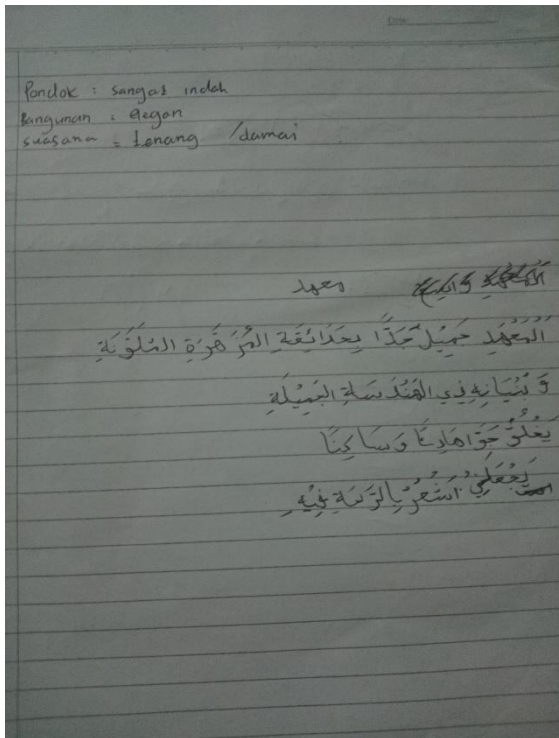 Date:
Pondok : sangat indah
Bangunan : elegan
suasana = tenang / damai
معهد
اَلْمَعْهَدِ جَمِيْلٌ جَدًّا بِحَدَائِقَةِ المُزْهَرَةِ المُلَوَّنَةِ
وَ بُنْيَانِهِ ذِي الهَنْدَسَةِ الجَمِيْلَةِ
يَخْلُقُ جَوَّا هَادِئًا وَسَاكِنًا
يَجْعَلَنِي اَشْعُرُ بِالرَّحَةِ فِيْهِ